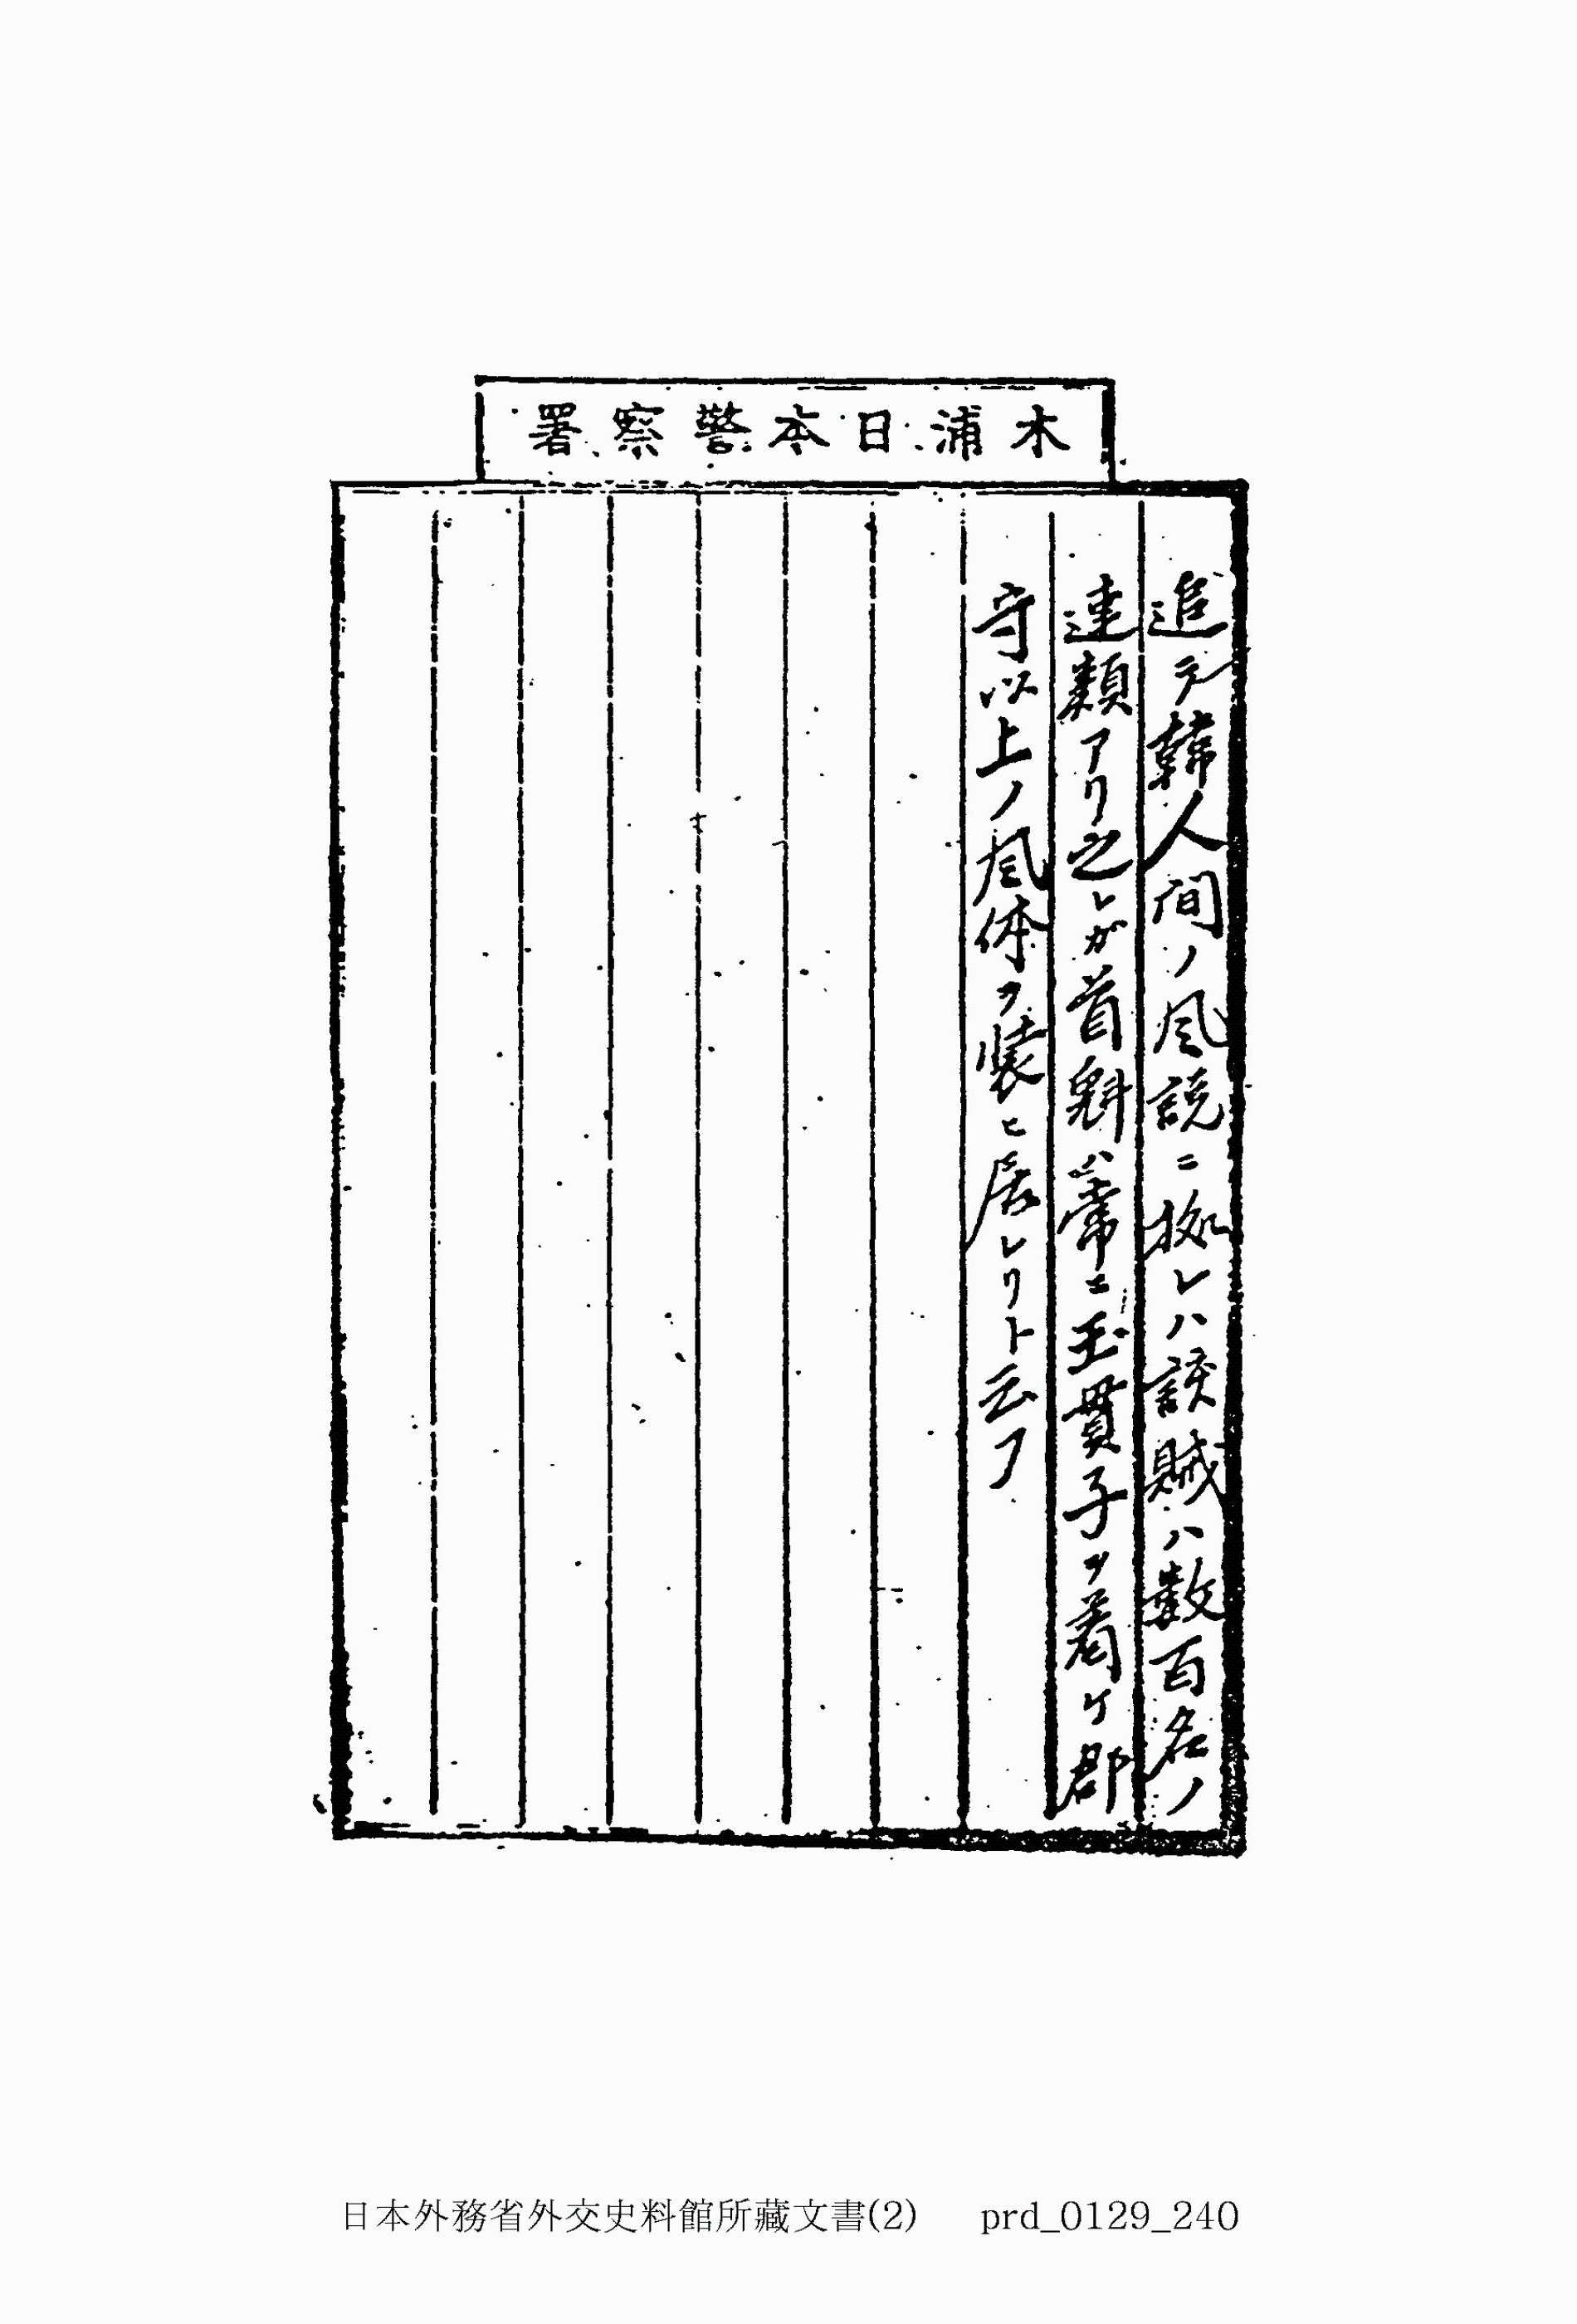 木浦日本警察署
追テ韓人間ノ風説ニ拠レハ該賊ハ数百名ノ
連類アリ之レガ首魁ハ常ニ玉貫子ヲ着ケ郡
守以上ノ風体ヲ装ヒ居レリト云フ
日本外務省外交史料館所藏文書(2) prd_0129_240